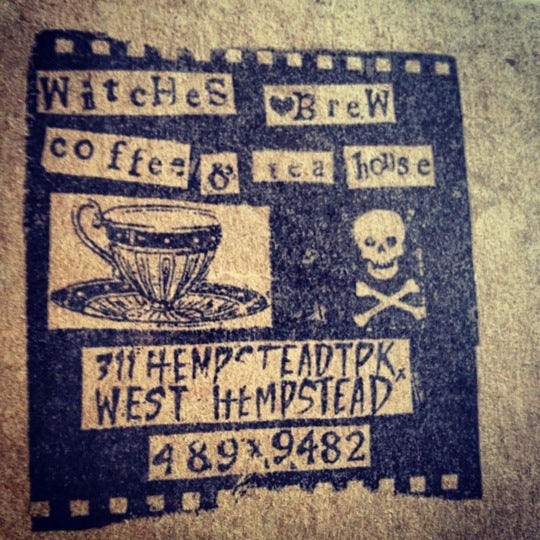 WitcHeS BreW
coffee & tea house
311 HEMPSTEADTPK
WEST HEMPSTEAD
489x9482